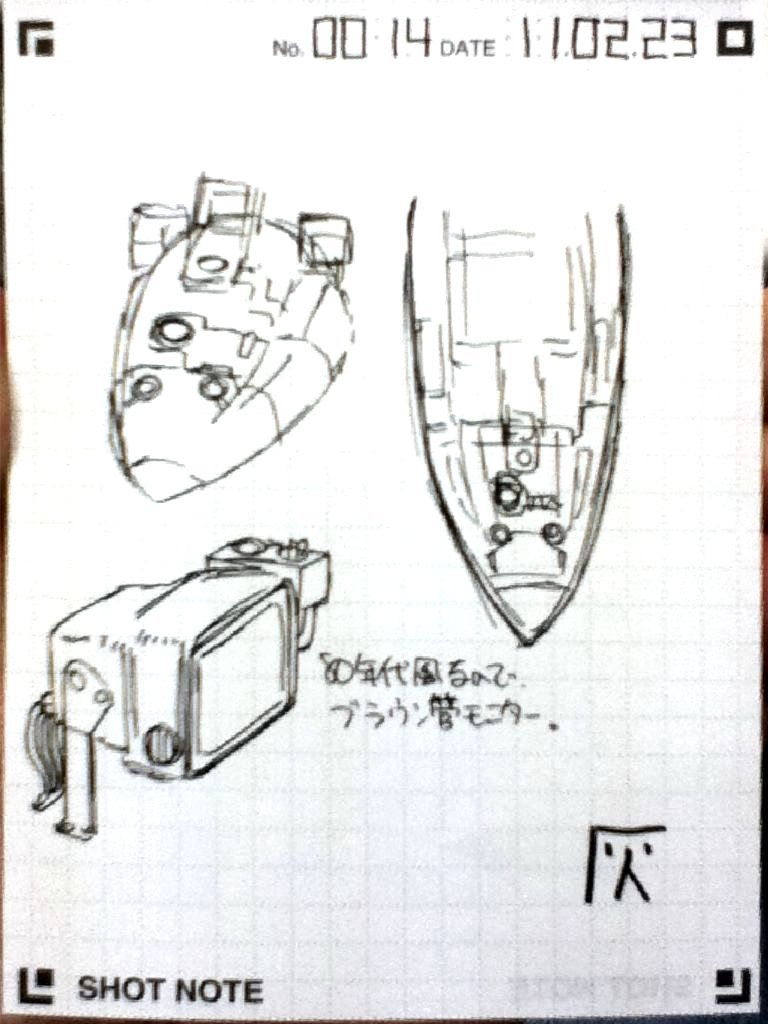 No. 00 14 DATE 11.02.23
'80年代風なので
ブラウン管モニター。
SHOT NOTE